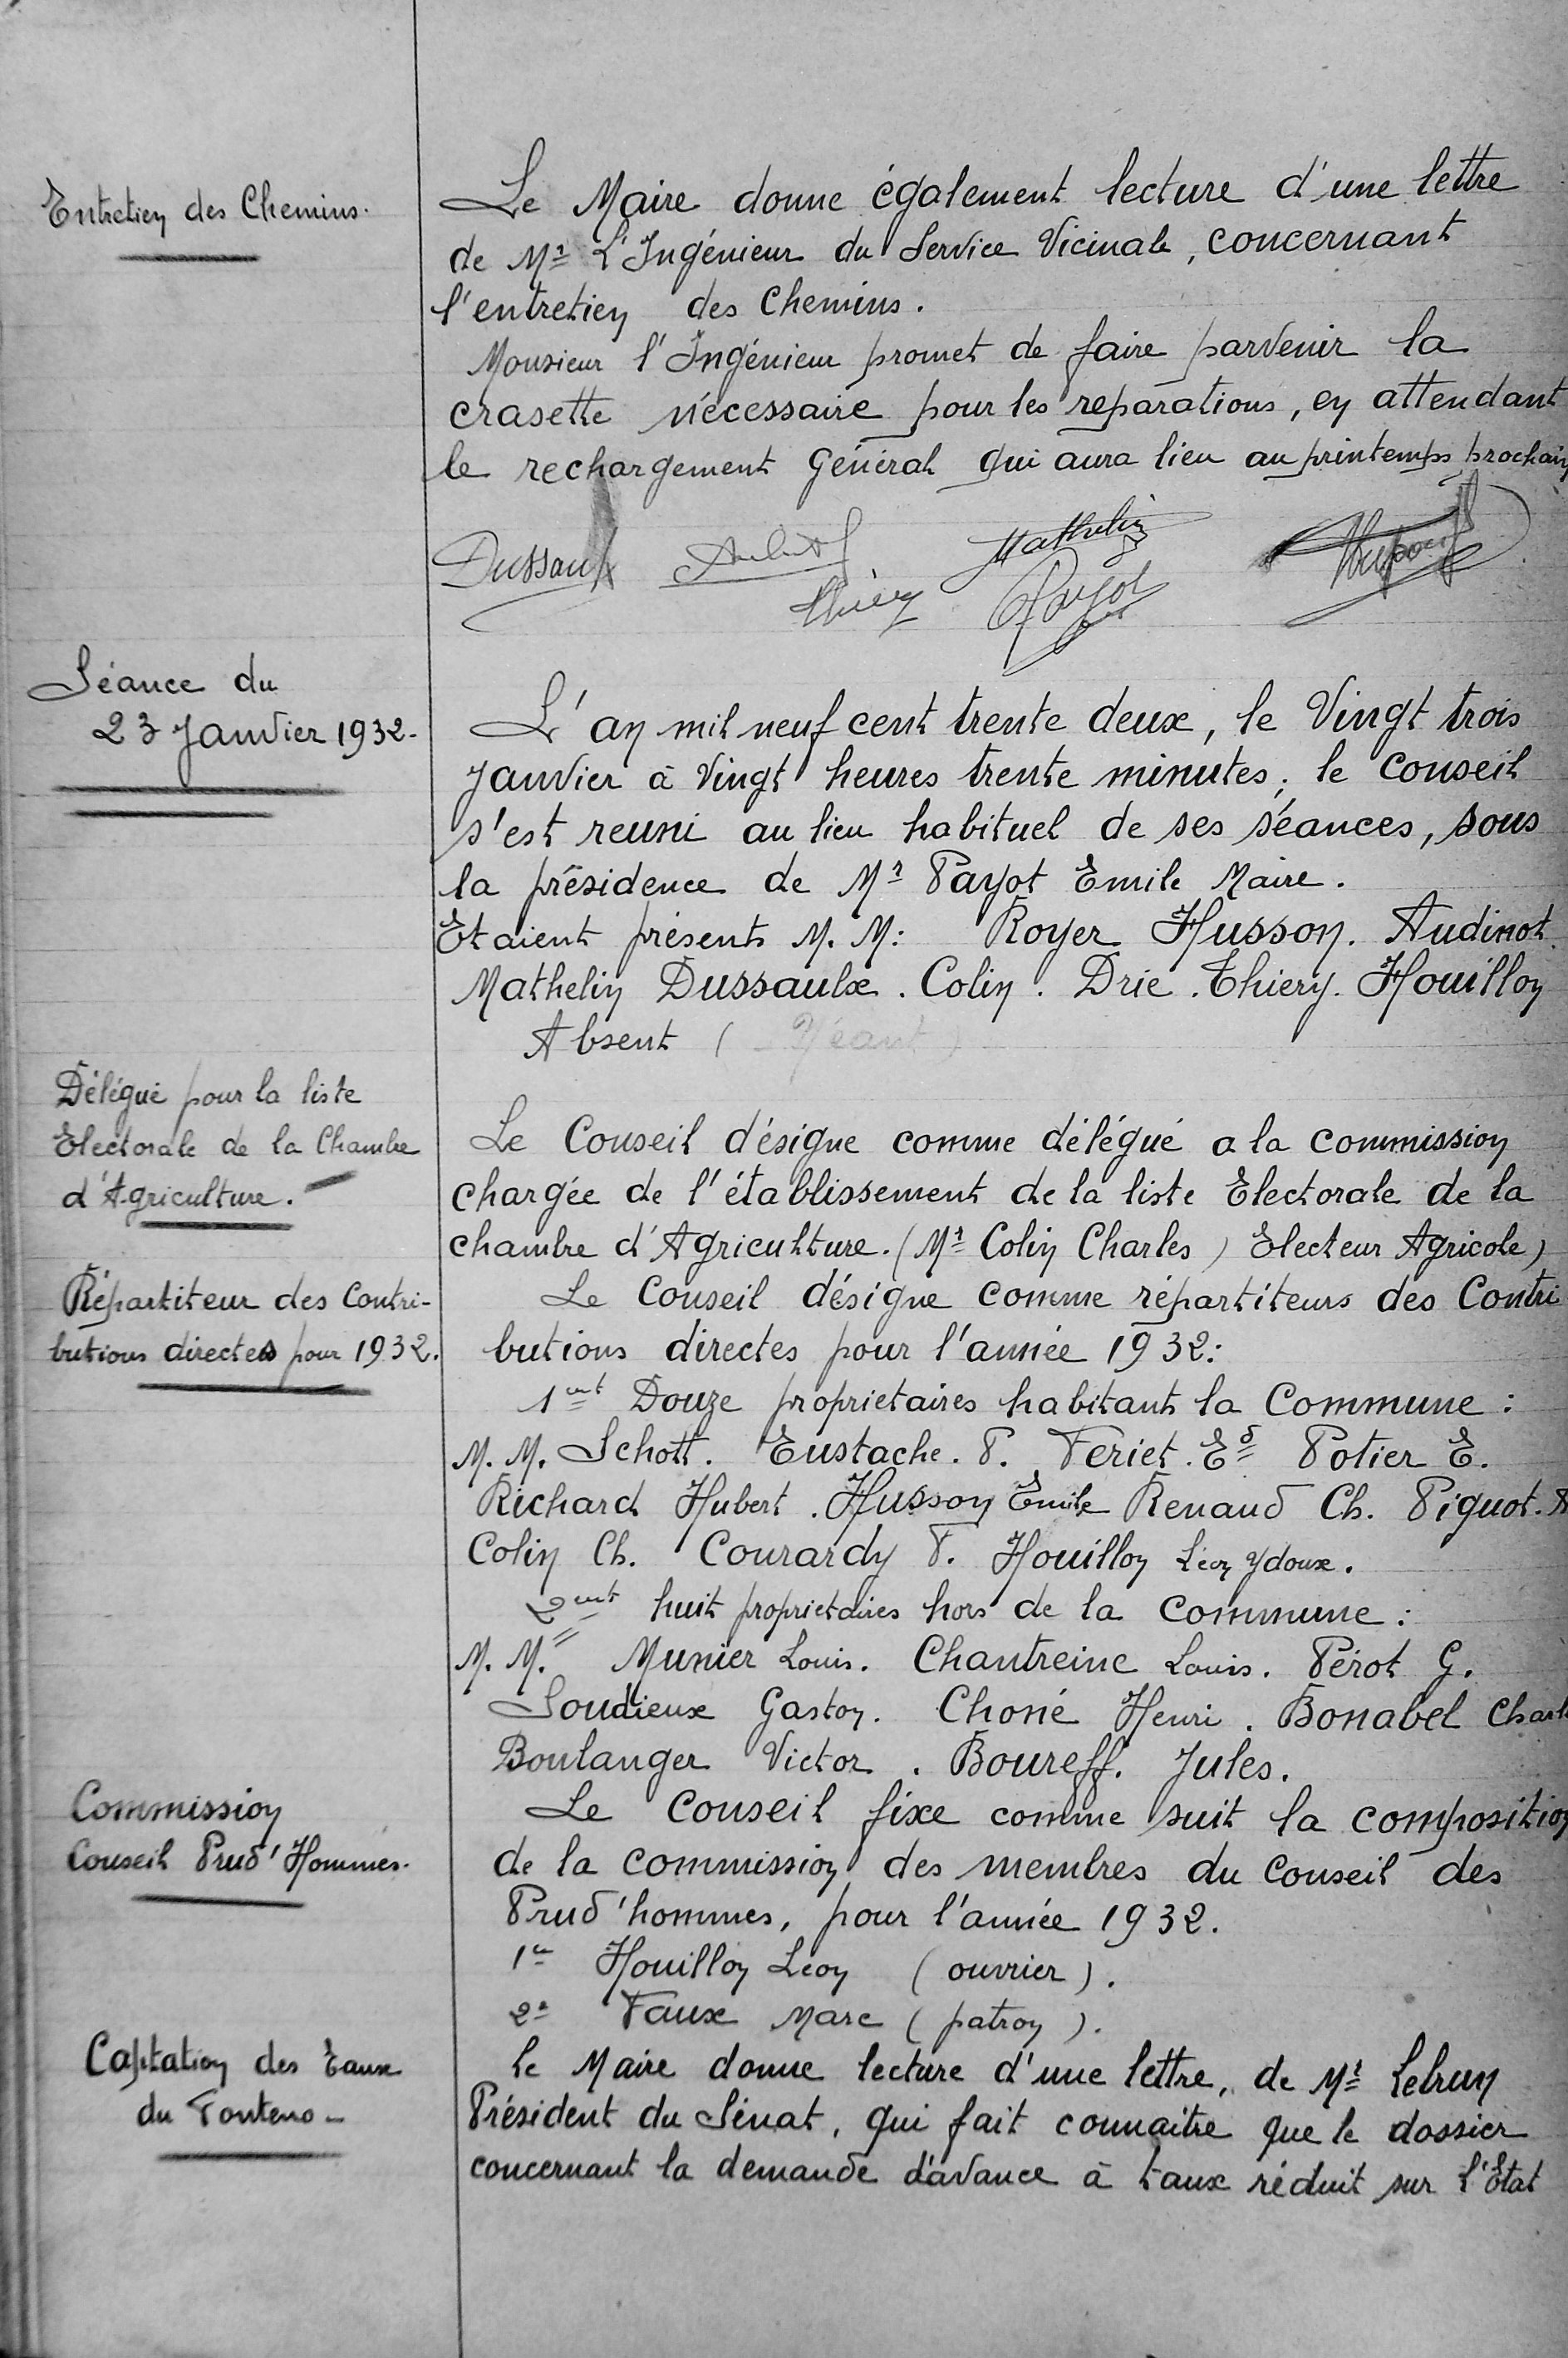 Entretien des Chemins.
Le Maire donne également lecture d'une lettre
de Mr L'Ingénieur du Service Vicinale, concernant
l'entretien des Chemins.
Monsieur l'Ingénieur promet de faire parvenir la
crasette nécessaire pour les reparations, en attendant
le rechargement Général qui aura lieu au printemps prochain
Dussaulx
Mathelin
Thiéry
Payot
Séance du
23 Janvier 1932.
L'an mil neuf cent trente deux, le Vingt trois
Janvier à Vingt heures trente minutes, le Conseil
s'est reuni au lieu habituel de ses séances, sous
la présidence de Mr Payot Emile Maire.
Etaient présents M. M: Royer Husson. Audinot.
Mathelin Dussaulx. Colin. Drie. Thiery. Houillon
Absent ( Néant )
Délégué pour la liste
Electorale de la Chambre
d'Agriculture.
Le Conseil désigne comme délégué a la commission
chargée de l'établissement de la liste Electorale de la
chambre d'Agriculture. (Mr Colin Charles) Electeur Agricole)
Répartiteur des Contri-
butions directes pour 1932.
Le Conseil désigne comme répartiteurs des Contri
butions directes pour l'année 1932:
1ent Douze proprietaires habitants la Commune :
M. M. Schott. Eustache. P. Feriet. Ed Potier E.
Richard Hubert. Husson Emile Renaud Ch. Piguot.
Colin Ch. Courardy P. Houillon Léon Ydoux.
2ent huit proprietaires hors de la Commune :
M. M. Munier Louis. Chantreine Louis. Pérot G.
Soudieux Gaston. Choné Henri. Bonabel Charl
Boulanger Victor. Boureff. Jules.
Commission
Conseil Prud'Hommes.
Le Conseil fixe comme suit la composition
de la commission des membres du Conseil des
Prud'hommes, pour l'année 1932.
1e Houillon Léon (ouvrier).
2e Faux Marc (patron).
Captation des Eaux
du Fonteno -
le Maire donne lecture d'une lettre, de Mr Lebrun
Président du Sénat, qui fait connaitre que le dossier
concernant la demande d'avance à taux réduit sur l'Etat